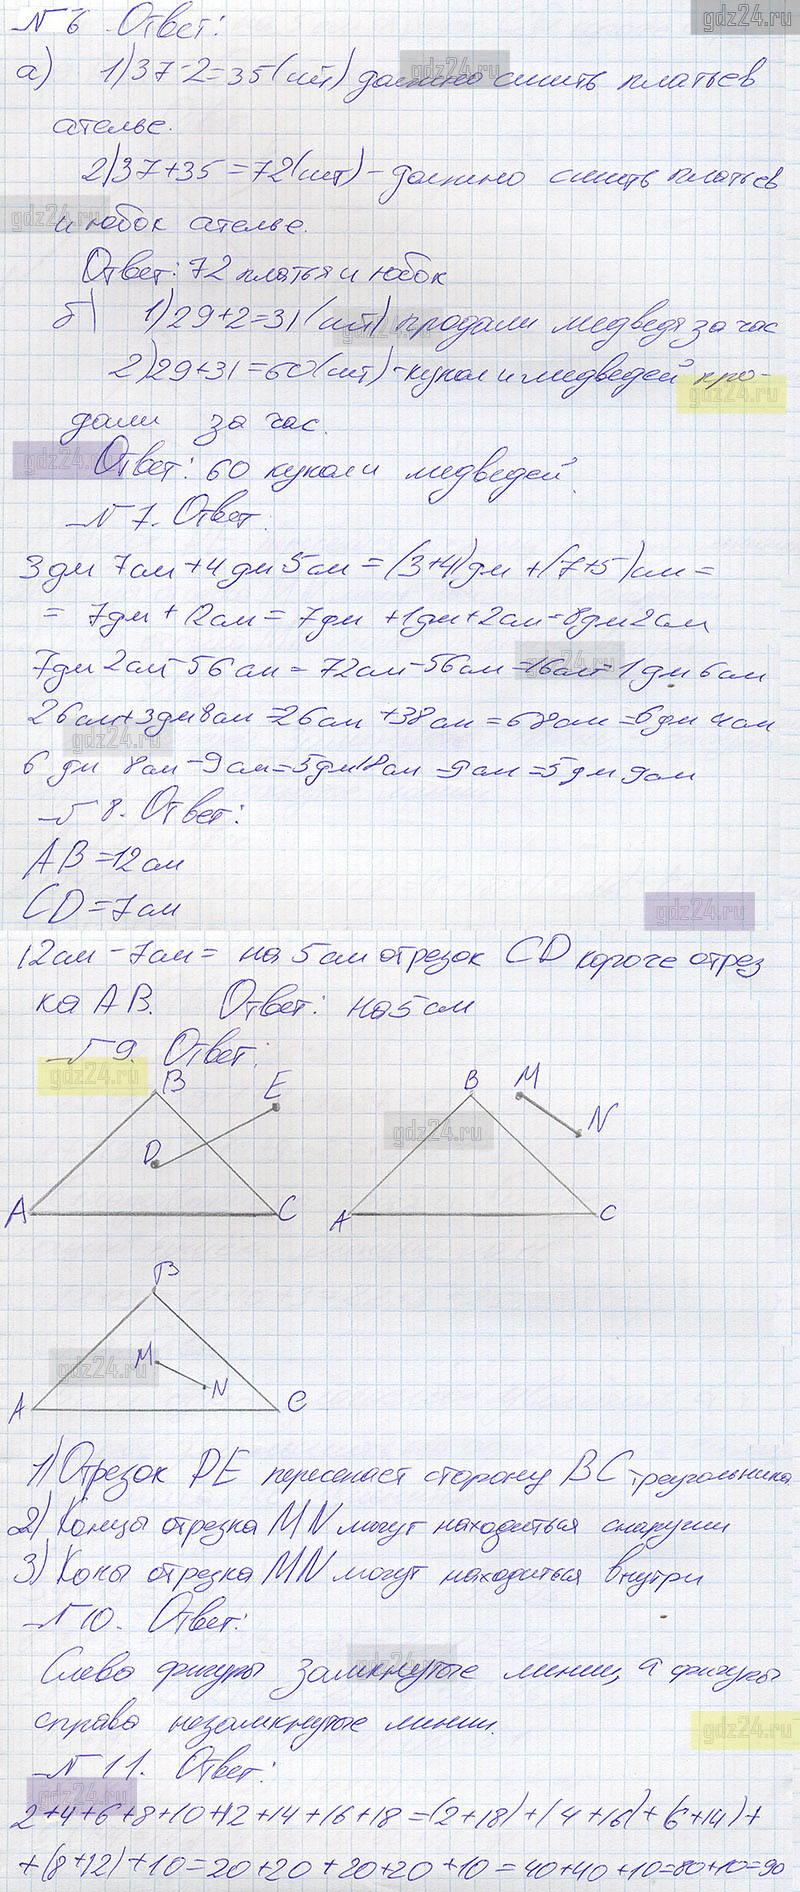 gdz24.ru
№ 6 Ответ:
а) 1) 37-2=35(шт) должно сшить платьев
ателье.
2) 37+35=72(шт) - должно сшить платьев
и юбок ателье.
Ответ: 72 платья и юбок
б) 1) 29+2=31(шт) продали медведя за час
2) 29+31=60(шт) - кукол и медведей про-
дали за час.
Ответ: 60 кукол и медведей.
№ 7. Ответ.
3 дм 7 см + 4 дм 5 см = (3+4) дм + (7+5) см =
= 7 дм + 12 см = 7 дм + 1 дм + 2 см = 8 дм 2 см
7 дм 2 см - 56 см = 72 см - 56 см = 16 см = 1 дм 6 см
26 см + 3 дм 8 см = 26 см + 38 см = 68 см = 6 дм 4 см
6 дм 8 см - 9 см = 5 дм 18 см - 9 см = 5 дм 9 см
№ 8. Ответ:
АВ = 12 см
CD = 7 см
12 см - 7 см = на 5 см отрезок CD короче отрез
ка АВ. Ответ: на 5 см
№ 9. Ответ:
B E B M
D N
A C A C
B
M N
A C
1) Отрезок DE пересекает сторону ВС треугольника
2) Концы отрезка MN могут находиться снаружи
3) Коны отрезка MN могут находиться внутри
№ 10. Ответ:
Слева фигуры замкнутые линии, а фигуры
справа незамкнутые линии.
№ 11. Ответ:
2+4+6+8+10+12+14+16+18=(2+18)+(4+16)+(6+14)+
+(8+12)+10=20+20+20+20+10=40+40+10=80+10=90